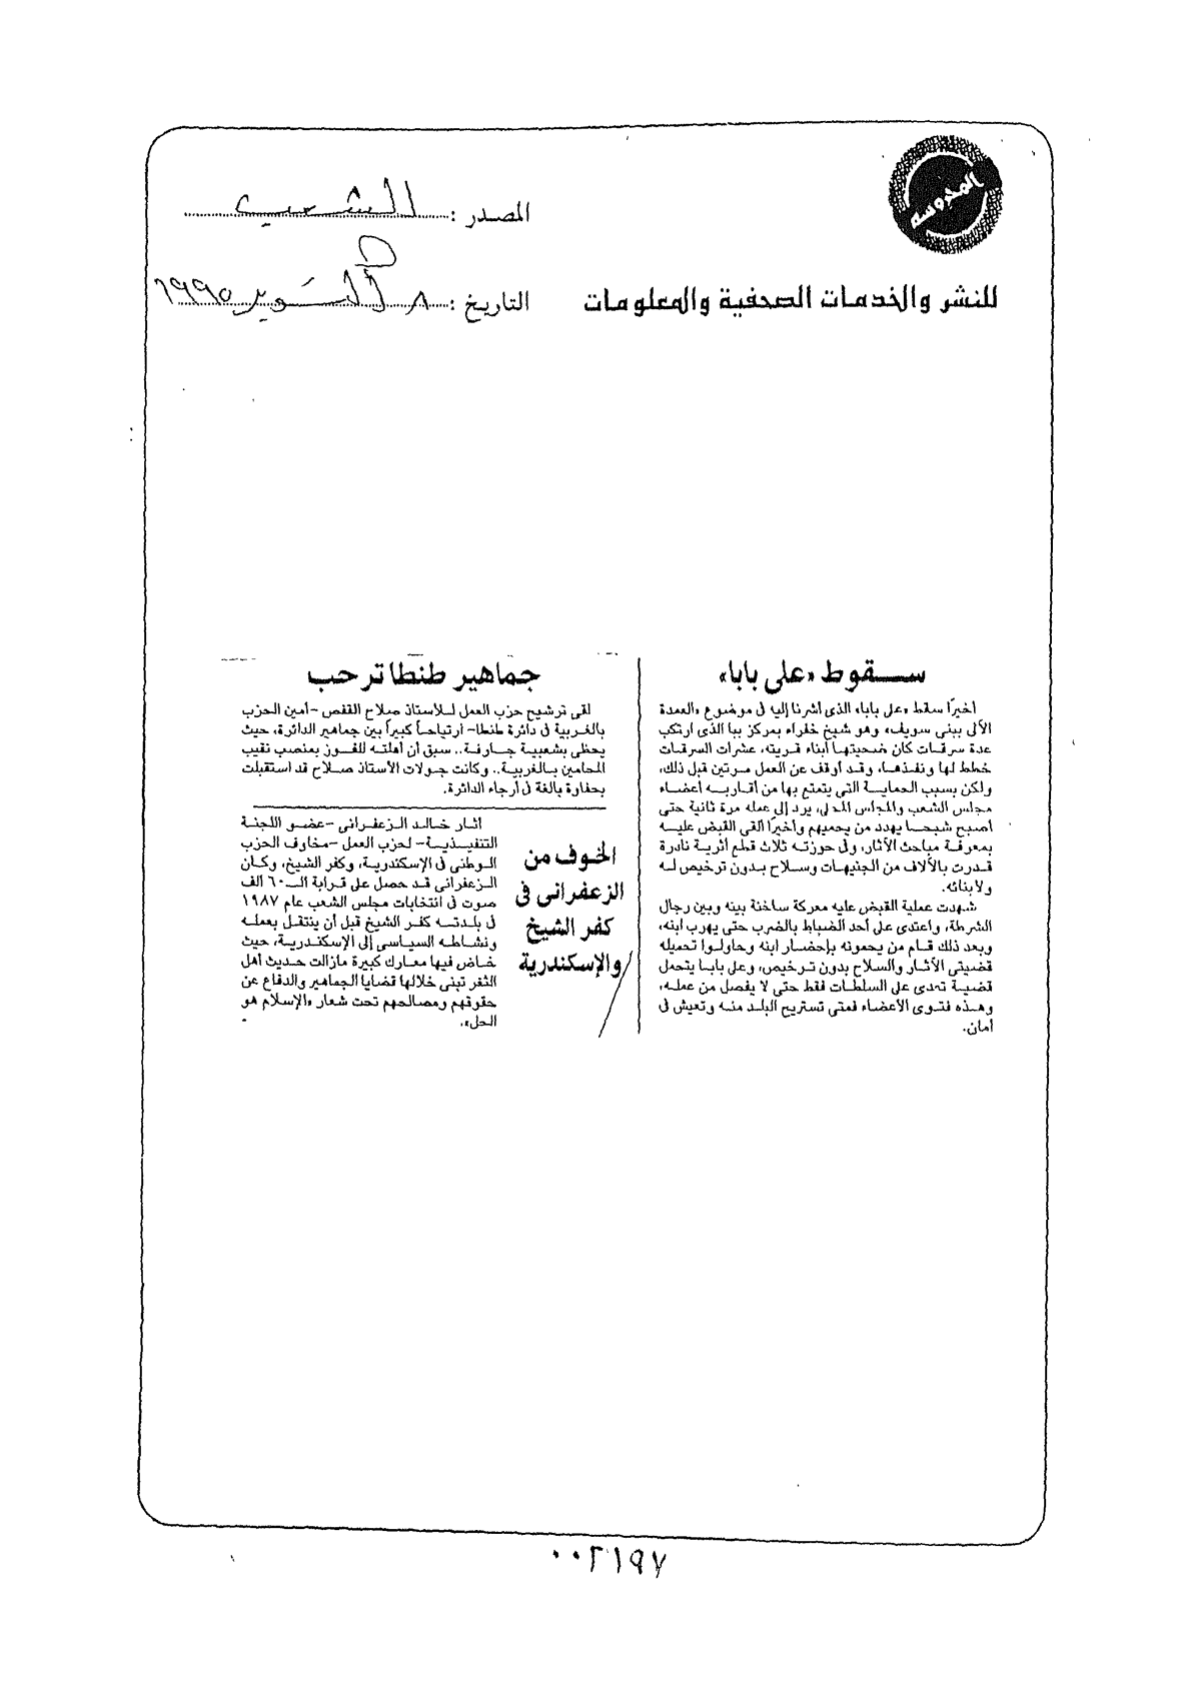 المحروسه
للنشر والخدمات الصحفية والمعلومات
المصدر : الشعب
التاريخ : ٨ أكتوبر ١٩٩٥
سقوط «على بابا»
أخيرًا سقط «على بابا» الذى أشرنا إليه فى موضوع «العمدة
الآلى ببنى سويف» وهو شيخ خفراء بمركز ببا الذى ارتكب
عدة سرقات كان ضحيتها أبناء قريته، عشرات السرقات
خطط لها ونفذها، وقد أوقف عن العمل مرتين قبل ذلك،
ولكن بسبب الحماية التى يتمتع بها من أقاربه أعضاء
مجلس الشعب والمجلس المحلى، يرد إلى عمله مرة ثانية حتى
أصبح شبحا يهدد من يحميهم وأخيرًا ألقى القبض عليه
بمعرفة مباحث الآثار، وفى حوزته ثلاث قطع أثرية نادرة
قدرت بالآلاف من الجنيهات وسلاح بدون ترخيص له
ولابنائه.
شهدت عملية القبض عليه معركة ساخنة بينه وبين رجال
الشرطة، واعتدى على أحد الضباط بالضرب حتى يهرب ابنه،
وبعد ذلك قام من يحمونه بإحضار ابنه وحاولوا تحميله
قضيتى الآثار والسلاح بدون ترخيص، وعلى بابا يتحمل
قضية تعدى على السلطات فقط حتى لا يفصل من عمله،
وهذه فتوى الأعضاء فمتى تستريح البلد منه وتعيش فى
أمان.
جماهير طنطا ترحب
لقى ترشيح حزب العمل للأستاذ صلاح القفص -أمين الحزب
بالغربية فى دائرة طنطا- ارتياحاً كبيراً بين جماهير الدائرة، حيث
يحظى بشعبية جارفة.. سبق أن أهلته للفوز بمنصب نقيب
المحامين بالغربية.. وكانت جولات الأستاذ صلاح قد استقبلت
بحفاوة بالغة فى أرجاء الدائرة.
الخوف من
الزعفرانى فى
كفر الشيخ
والإسكندرية
أثار خالد الزعفرانى -عضو اللجنة
التنفيذية- لحزب العمل -مخاوف الحزب
الوطنى فى الإسكندرية، وكفر الشيخ، وكان
الزعفرانى قد حصل على قرابة الـ٦٠ ألف
صوت فى انتخابات مجلس الشعب عام ١٩٨٧
فى بلدته كفر الشيخ قبل أن ينتقل بعمله
ونشاطه السياسى إلى الإسكندرية، حيث
خاض فيها معارك كبيرة مازالت حديث أهل
الثغر تبنى خلالها قضايا الجماهير والدفاع عن
حقوقهم ومصالحهم تحت شعار «الإسلام هو
الحل».
٠٠٢١٩٧